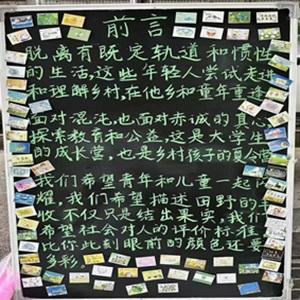 前言
脱离有既定轨道和惯性
的生活,这些年轻人尝试走进
和理解乡村,在他乡和童年重逢
面对混沌,也面对赤诚的真心
探索教育和公益,这是大学生
的成长营,也是乡村孩子的夏令营
我们希望青年和儿童一起闪
耀,我们希望描述田野的丰
收不仅只是结出果实,我们
希望社会对人的评价标准
比你此刻眼前的颜色还要
多彩。